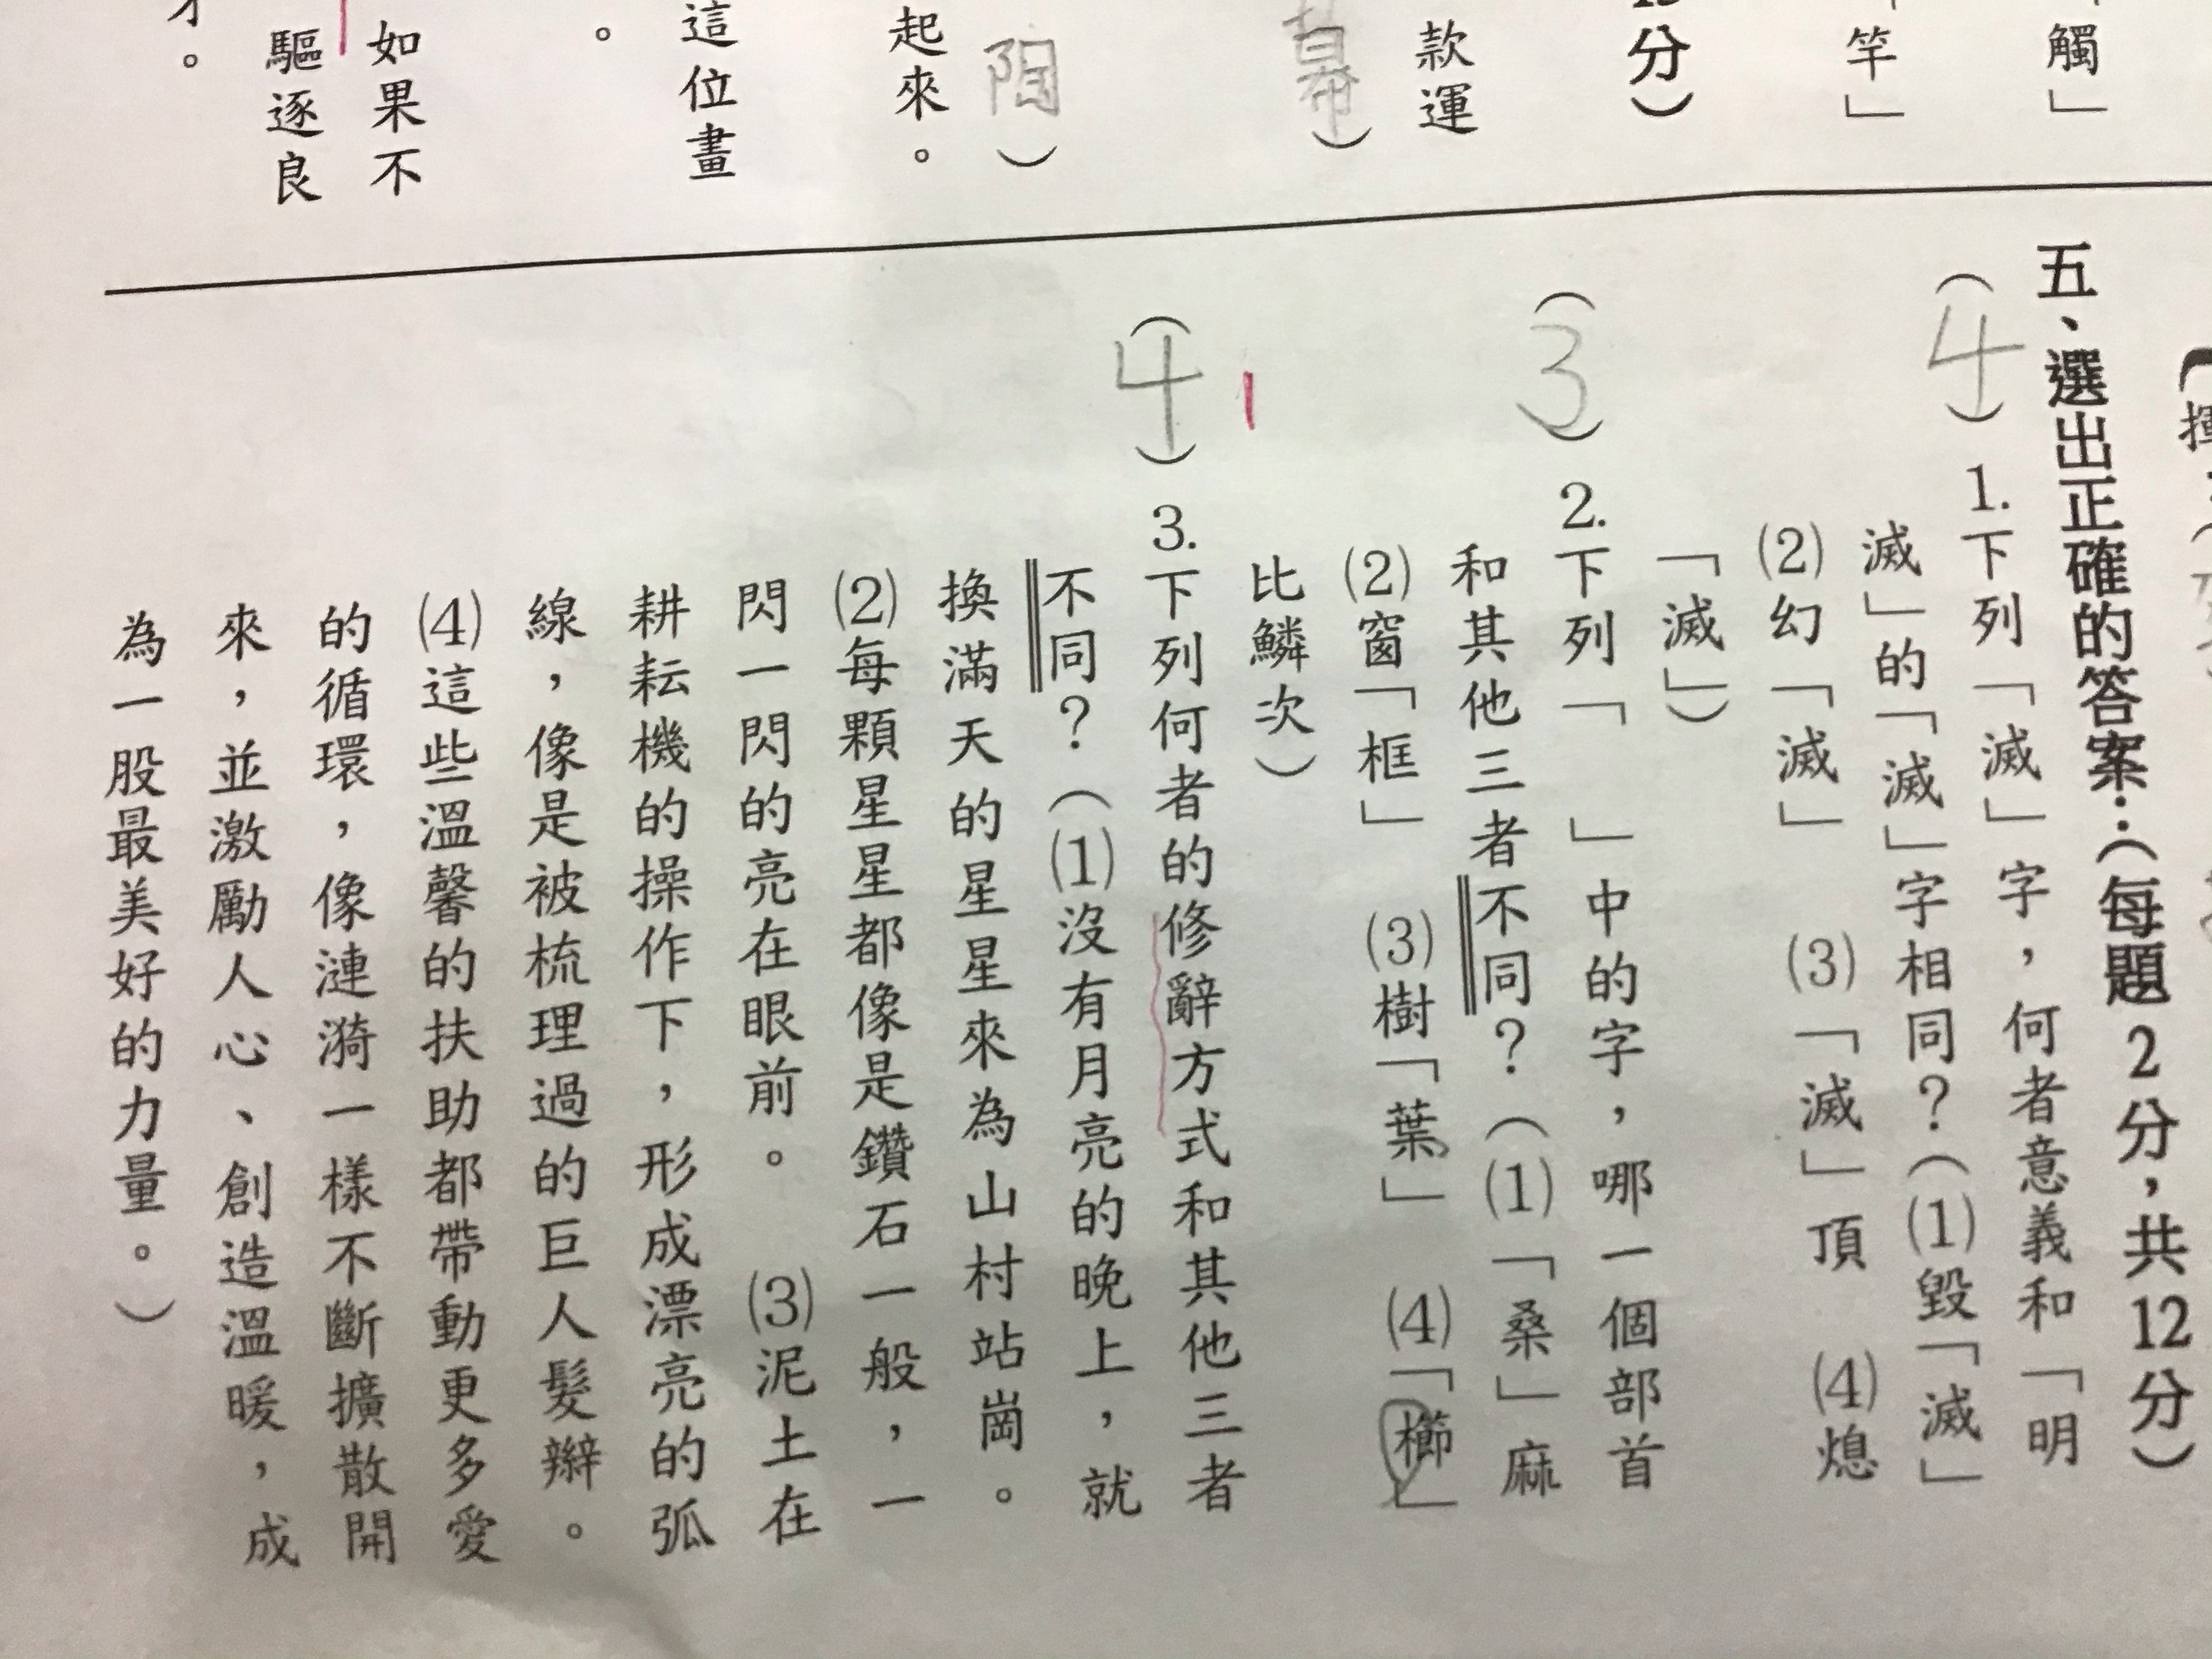 觸」
竿」
分）
款運
幕）
陷）
起來。
這位畫
。
如果不
驅逐良
才。
五、選出正確的答案：（每題2分，共12分）
（4）1.下列「滅」字，何者意義和「明
滅」的「滅」字相同？（⑴毀「滅」
⑵幻「滅」　⑶「滅」頂　⑷熄
「滅」）
（3）2.下列「　」中的字，哪一個部首
和其他三者不同？（⑴「桑」麻
⑵窗「框」　⑶樹「葉」　⑷「櫛」
比鱗次）
1
（4）3.下列何者的修辭方式和其他三者
不同？（⑴沒有月亮的晚上，就
換滿天的星星來為山村站崗。
⑵每顆星星都像是鑽石一般，一
閃一閃的亮在眼前。　⑶泥土在
耕耘機的操作下，形成漂亮的弧
線，像是被梳理過的巨人髮辮。
⑷這些溫馨的扶助都帶動更多愛
的循環，像漣漪一樣不斷擴散開
來，並激勵人心、創造溫暖，成
為一股最美好的力量。）